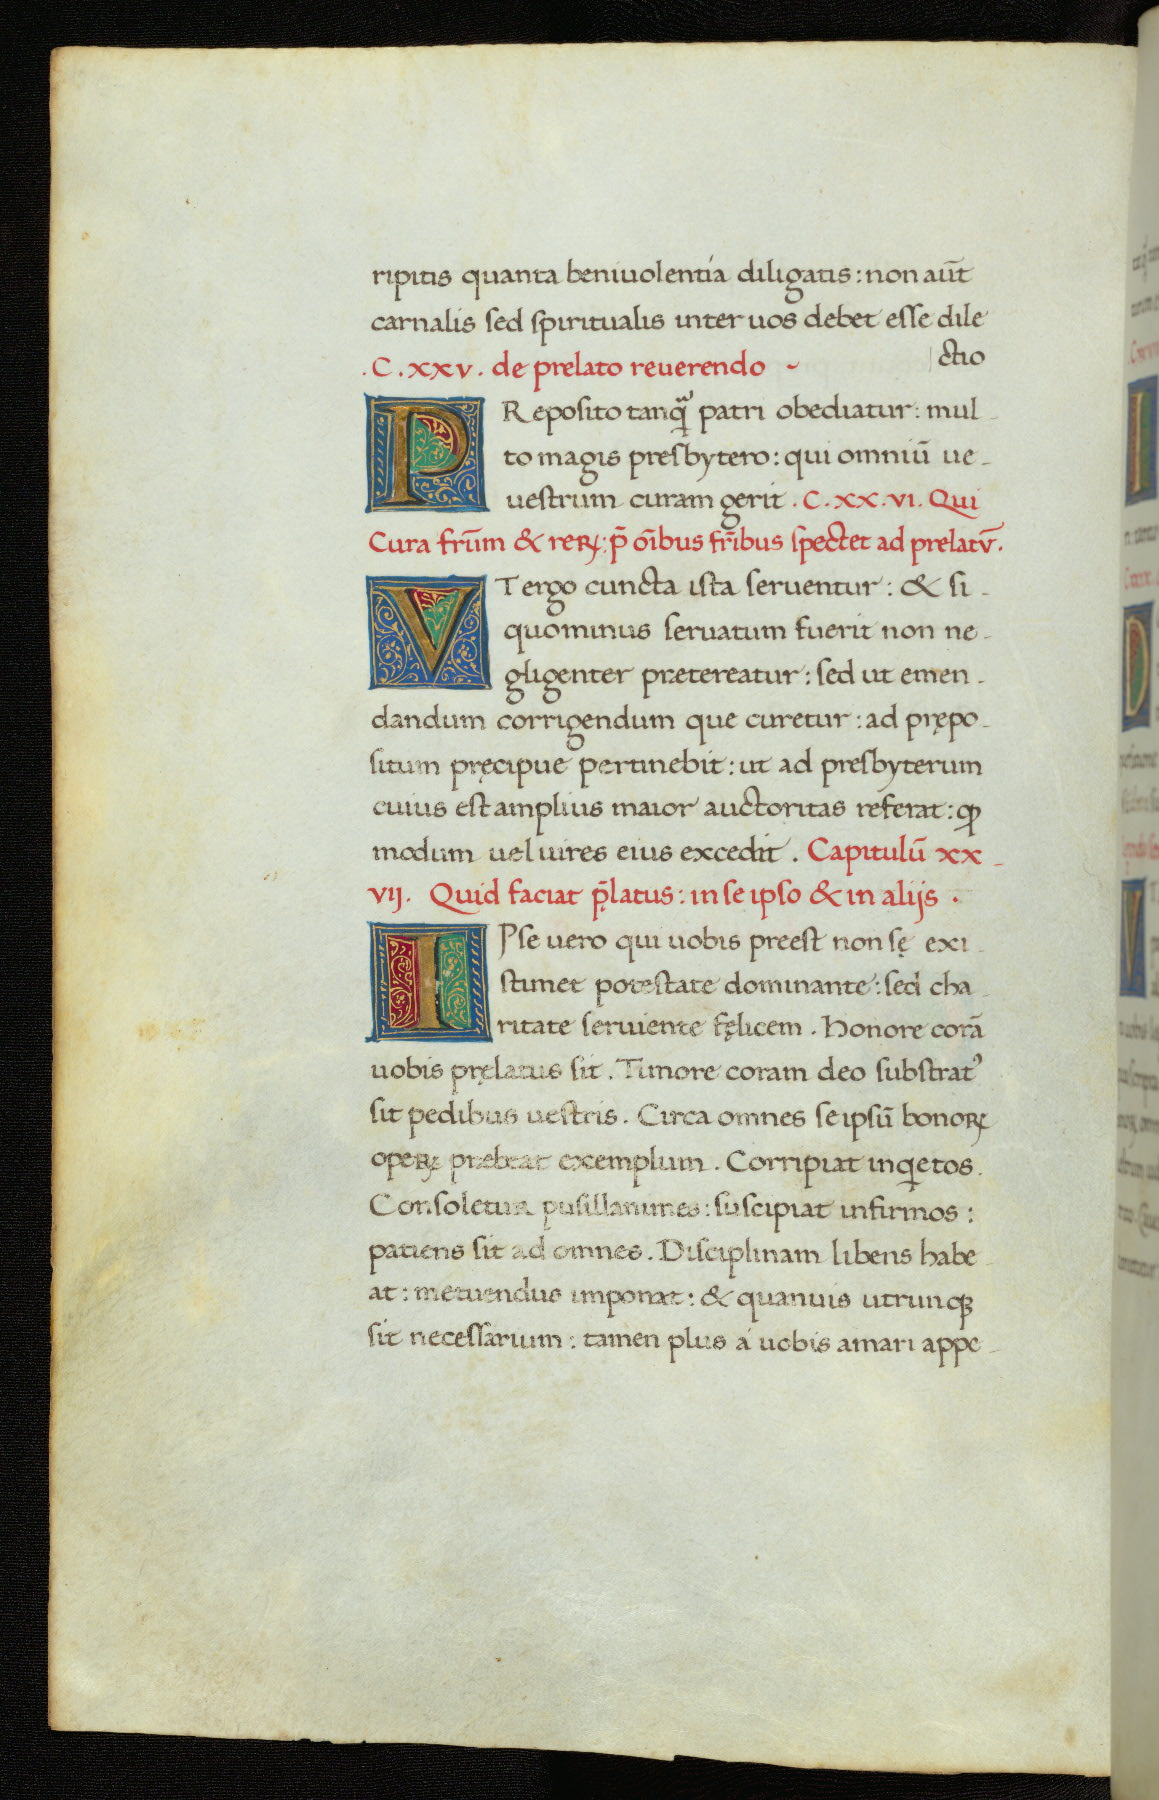 ripitis quanta beniuolentia diligatis: non aūt
carnalis sed spiritualis inter uos debet esse dile
ctio
.C.xxv. de prelato reuerendo -
PReposito tanꝙ̃ patri obediatur: mul-
to magis presbytero: qui omniū ue-
uestrum curam gerit. C.xx.vi. Qui
Cura frūm & reꝝ: p̄ oībus fr̄ibus spectet ad prelatv̄.
VT ergo cuncta ista seruentur: & si-
quominus seruatum fuerit non ne-
gligenter prætereatur: sed ut emen-
dandum corrigendum que curetur: ad prępo-
situm pręcipue pertinebit: ut ad presbyterum
cuius est amplius maior auctoritas referat: ꝙ
modum uel uires eius excedit. Capitulū xx-
vij. Quid faciat p̨̄latus: in se ipso & in alijs.
IPse uero qui uobis preest non sę exi-
stimet potestate dominante: sed cha-
ritate seruiente fęlicem. Honore corā
uobis pręlatus sit. Timore coram deo substratꝰ
sit pedibus uestris. Circa omnes se ipsū bonoꝝ
opeꝝ præbeat exemplum. Corripiat inꝗetos.
Consoletur pusillanimes: suscipiat infirmos:
patiens sit ad omnes. Disciplinam libens habe-
at: metuendus imponat: & quanuis utrunqꝫ
sit necessarium: tamen plus á uobis amari appe-